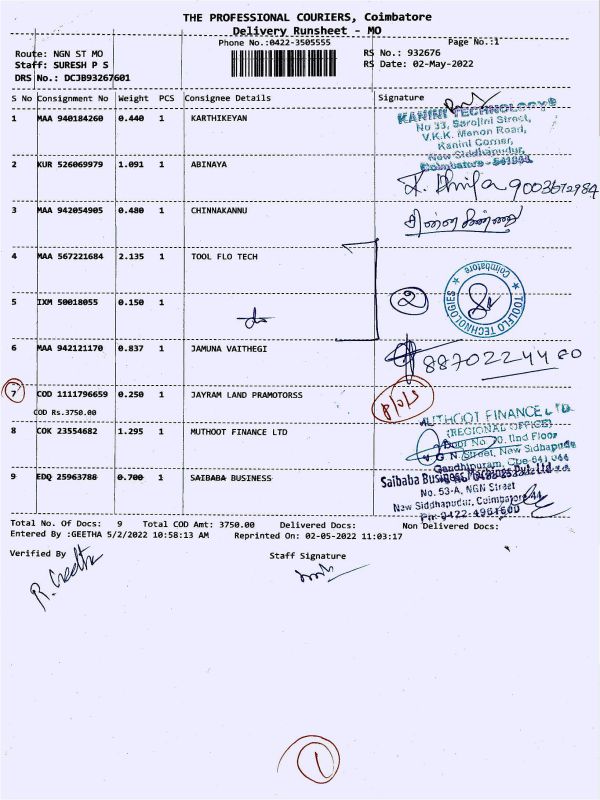 THE PROFESSIONAL COURIERS, Coimbatore
Delivery Runsheet - MO
Phone No.:0422-3505555
Page No.:1
Route: NGN ST MO
RS No.: 932676
Staff: SURESH P S
RS Date: 02-May-2022
DRS No.: DCJB93267601
S No Consignment No Weight PCS Consignee Details Signature
1 MAA 940184260 0.440 1 KARTHIKEYAN
KANINI TECHNOLOGY®
No 33, Sarojini Street,
V.K.K. Menon Road,
Kanini Corner,
New Siddhapudur,
Coimbatore - 641044
2 KUR 526069979 1.091 1 ABINAYA
9003672984
3 MAA 942054905 0.480 1 CHINNAKANNU
4 MAA 567221684 2.135 1 TOOL FLO TECH
2
Coimbatore
TOOLFLO TECHNOLOGIES
5 IXM 50018055 0.150 1
do
6 MAA 942121170 0.837 1 JAMUNA VAITHEGI
8870224480
7 COD 1111796659 0.250 1 JAYRAM LAND PRAMOTORSS
COD Rs.3750.00
8 COK 23554682 1.295 1 MUTHOOT FINANCE LTD
MUTHOOT FINANCE LTD
(REGIONAL OFFICE)
Door No 70, IInd Floor
V G N Street, New Sidhapude
Gandhipuram, Cbe-641 044
9 EDQ 25963788 0.700 1 SAIBABA BUSINESS
Saibaba Business Machines Pvt. Ltd.
No. 53-A, NGN Street
New Siddhapudur, Coimbatore-44
Ph: 0422-4961600
Total No. Of Docs: 9 Total COD Amt: 3750.00 Delivered Docs: Non Delivered Docs:
Entered By :GEETHA 5/2/2022 10:58:13 AM Reprinted On: 02-05-2022 11:03:17
Verified By Staff Signature
R. Geetha
1